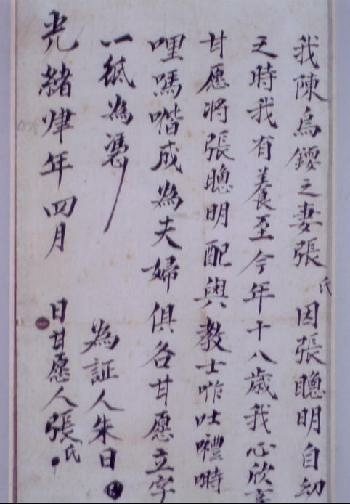 我陳烏鏝之妻張氏因張聰明自幼
之時我有養至今年十八歲我心欣意
甘愿將張聰明配與教士吽吐禮時
哩嗎喈成為夫婦俱各甘愿立字
一紙為憑
為証人朱日
光緒 年四月 日甘愿人張氏